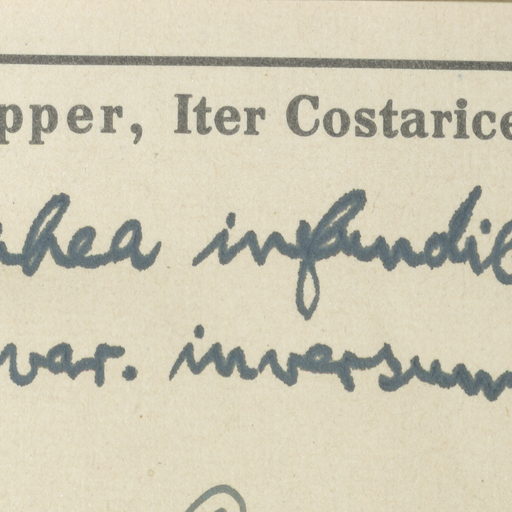 pper, Iter Costarice
hea infundib
var. inversum